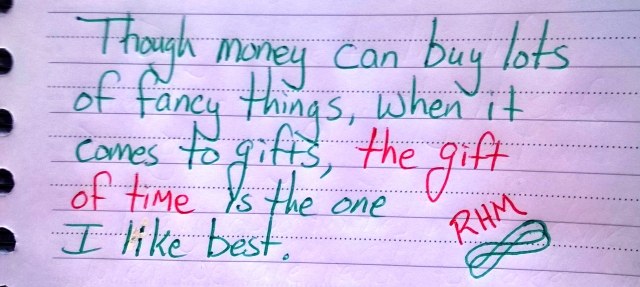 Though money can buy lots
of fancy things, when it
comes to gifts, the gift
of time is the one
I like best.
RHM